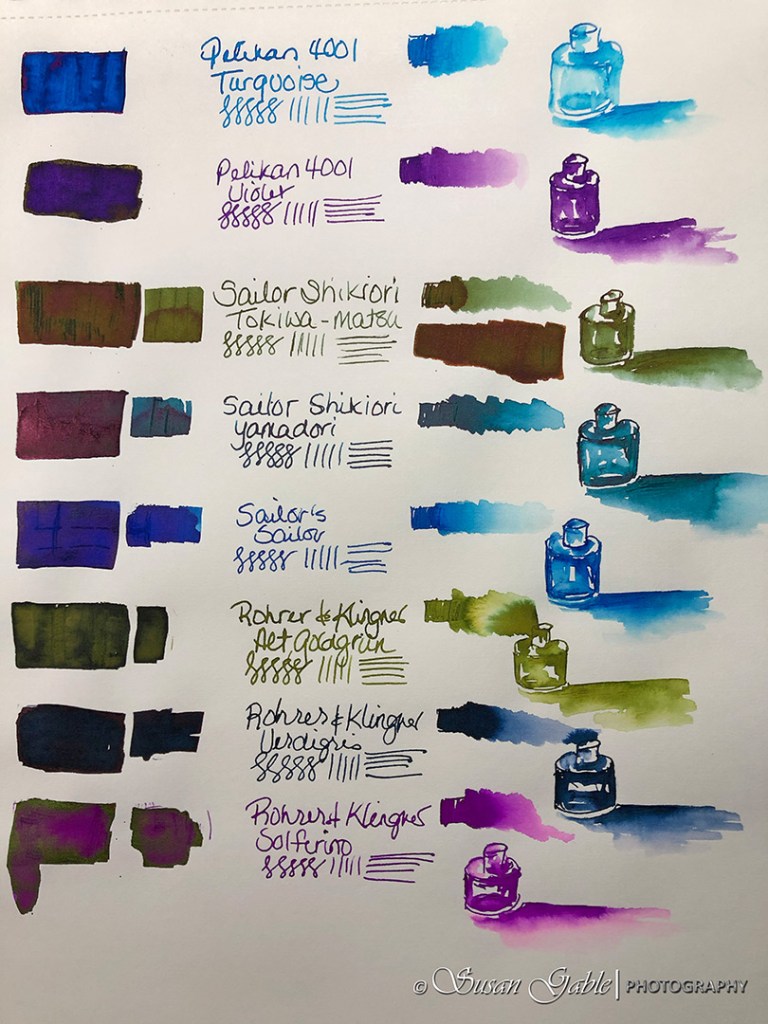 Pelikan 4001
Turquoise
Pelikan 4001
Violet
Sailor Shikiori
Tokiwa-matsu
Sailor Shikiori
yamadori
Sailor's
Sailor
Rohrer & Klingner
Alt Goldgrün
Rohrer & Klingner
Verdigris
Rohrer & Klingner
Solferino
© Susan Gable | PHOTOGRAPHY